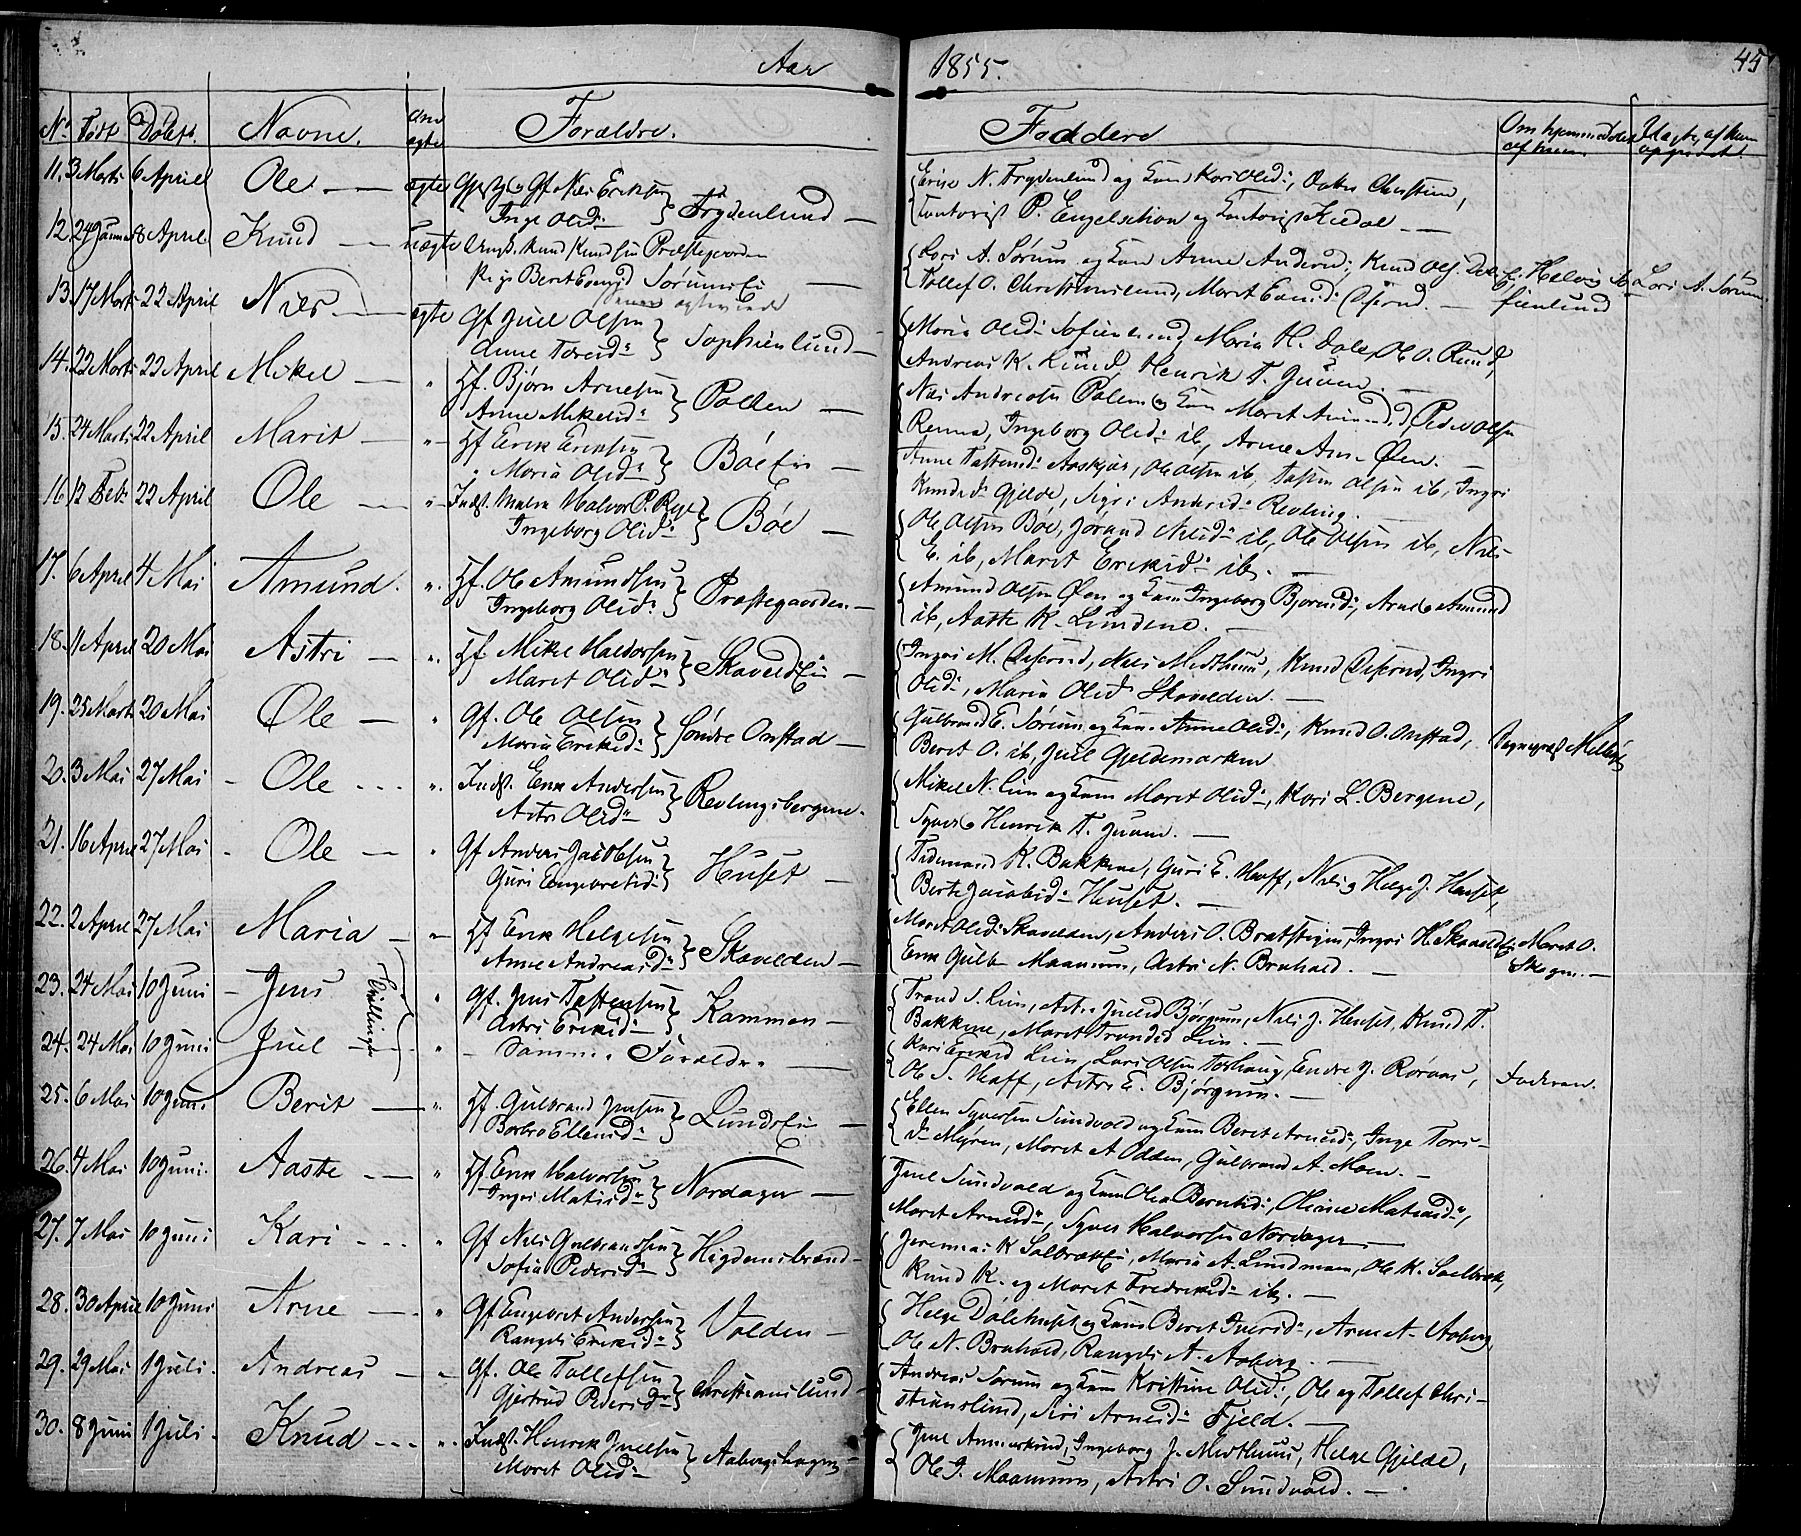 Aar 1855. 45
No Født Døbt. Navne. Om ægte Forældre. Faddere Om hjemmedøbt af hvem
11. 3 Marts 6 April Ole — ægte Nils Eriksen Inge Olsd: Frydenlund —
Erik N. Frydenlund og Kone Kari Olsd:,
Kontorist P. Engelschion og
12. 24 Januar 8 April Knud — uægte Knud Knudsen Præstegaarden
Pige Berit Sørumsei —
Lars A. Sørum og Kone Anne Andersd:, Knud Ols.
Tollef O. Christianslund, Marit — Lars A. Sørum
13. 17 Marts 22 April Niels — ægte Gf Juel Olsen Anne Toresd: Sophienlund —
Maria Olsd: Sofienlund, Maria H. Dale, Ole O. Ruud,
Andreas K. Ruud, Henrik T. Juven. —
14. 22 Marts 22 April Mikel — " Hf. Bjørn Arnesen Anne Mikelsd: Pollen —
Nils Andreasen Polen og Kone Marit Amundsd, Peder Olsen
Renna, Ingeborg Olsd: ib, Arne Arn. Øen. —
15. 24 Marts 22 April Marit — " Hf Erik Eriksen Maria Olsd: Bøeei —
Anne Tostensd: Aaskjær, Ole Olsen ib, Tosten Olsen ib, Ingri
Knudsd: Gjelde, Sigri Andersd: Revling. —
16. 12 Feb: 22 April Ole — " Indst. Halvor P. Rye Ingeborg Olsd: Bøe —
Ole Olsen Bøe, Jørand Nilsd: ib, Ole Olsen ib, Nils
E. ib, Marit Eriksd: ib. —
17. 6 April 4 Mai Amund. " Hf. Ole Amundsen Ingeborg Olsd: Præstegaarden. —
Amund Olsen Øen og Kone Ingeborg Bjørnsd:, Arne Amunds
ib, Aaste K. Lundene. —
18. 11 April 20 Mai Astri — " Hf Mikel Halvorsen Marit Olsd: Skaveldei —
Ingri M. Nils Midthuus, Knud Ingri
Olsd:, Maria Olsd Skavelden. —
19. 25 Marts 20 Mai Ole — " Gf. Ole Olsen Maria Eriksd: Søndre Onstad —
Gulbrand E. Sørum og Kone Anne Olsd:, Knud O. Onstad,
Berit O. ib, Juel Gjeldemarken Sognepræst
20. 3 Mai 27 Mai — Ole — " Indst. Erik Andersen Astri Olsd: Revlingsbergene.
Mikel N. Lien og Kone Marit Olsd:, Kari L. Bergene,
Syver Henrik T. Juven. —
21. 16 April 27 Mai — Ole — " Gf Anders Jacobsen Guri Engebretsd: Huset —
K. Bakkene, Guri E. Haff, Nils og Helge J. Huset,
Berte Jacobsd: Huset. —
22. 2 April 27 Mai Maria — " Hf Erik Helgesen Anne Andreasd: Skavelden —
Marit Olsd: Skavelden, Anders O. Bratstigen, Ingri H. Skavelde Marit O.
Erik Gulb Maanum, Astri N. Bruhæld. — Skogen. —
23. 24 Mai 10 Juni — Jens Tvillinger " Gf. Jens Tostensen Astri Eriksd: Kammen —
Trond S. Lien, Astri Juelsd Bjørgum, Nils J. Huset, Knud T.
Bakkene, Marit Trondsd Lien. —
24. 24 Mai 10 Juni Juel — " — Samme Forældre —
Kari Eriksd Lien, Lars Olsen Endre J. Røraas, Faderen.
Ole S. Haff, Astri E. Bjørgum. —
25. 6 Mai 10 Juni Berit — " Hf. Gulbrand Jensen Barbro Ellensd: Lundsei —
Ellen Syversen Sundvold og Kone Berit Arnesd:, Inge Tors-
d: Myren, Marit A Odden, Gulbrand A. Moen. —
26. 4 Mai 10 Juni. Aaste — " Hf. Erik Halvorsen Ingri Matisd: Nordager —
Juel Sundvold og Kone Olea Berntsd:, Oline Matisd:,
Marit Arnesd:, Syver Halvorsen Nordager. —
27. 7 Mai 10 Juni Kari — " Gf Nils Gulbrandsen Sofia Pedersd: Høgdemsbrænd —
Jeremias K Solbrækei, Maria A. Lundmoen, Ole K. Sælbræk,
Knud K. og Marit Fredriksd: ib. —
28. 30 April 10 Juni Arne — " Gf Engebret Andersen Rangdi Eriksd: Volden —
Helge Dølehuset og Kone Berit Iversd:, Arne A. Aaberg,
Ole N. Bruhæld, Rangdi A. Aaberg. —
29. 29 Mai 1 Juli. Andreas — " Gf. Ole Tollefsen Gjertrud Pedersd: Christianslund —
Andreas Sørum og Kone Kristine Olsd:, Ole og Tollef Chri-
stianslund, Siri Arnesd: Fjeld. —
30. 8 Juni 1 Juli. Knud — " Indst. Henrik Juelsen Marit Olsd: Aabergshagen —
Juel Ingeborg J. Midthuus, Helge Gjelde,
Ole J. Maanum, Astri O. Sundvold. —